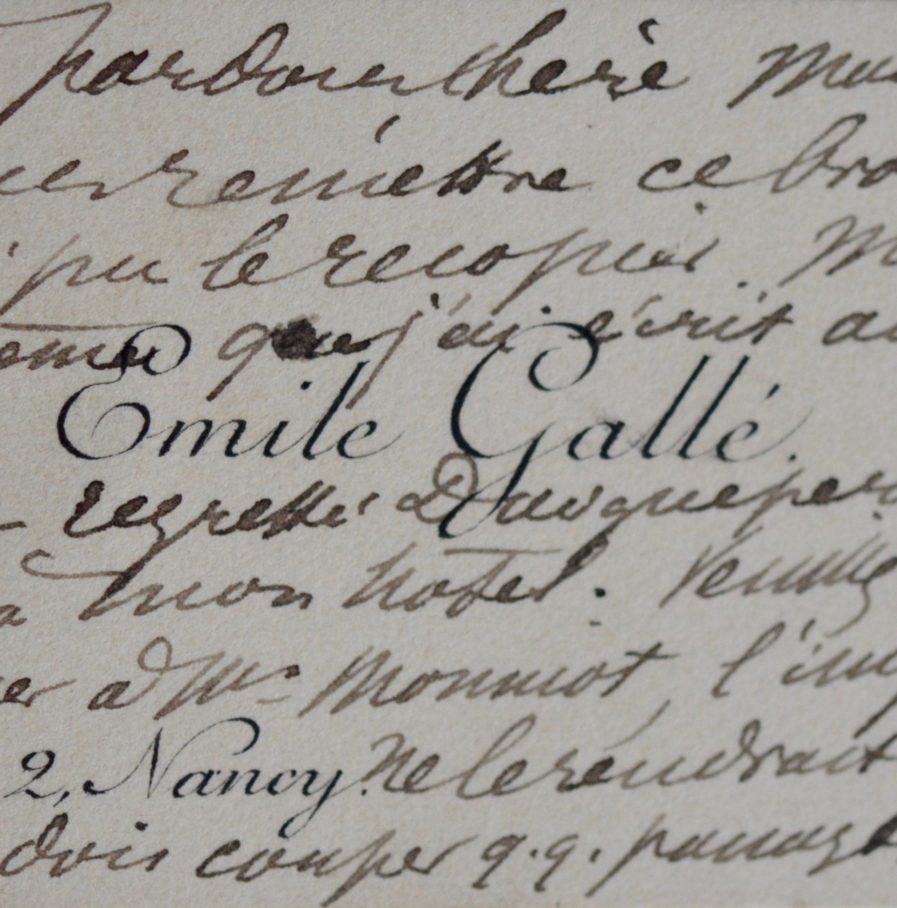 pardon chérie
remettre ce bro
pu le recopier. M
que j'ai écrit a
Emile Gallé.
regretté
à mon hotel. Veuille
er à Mr Monniot, l'im
2, Nancy. ne le rendrait
dois couper q.q. passage